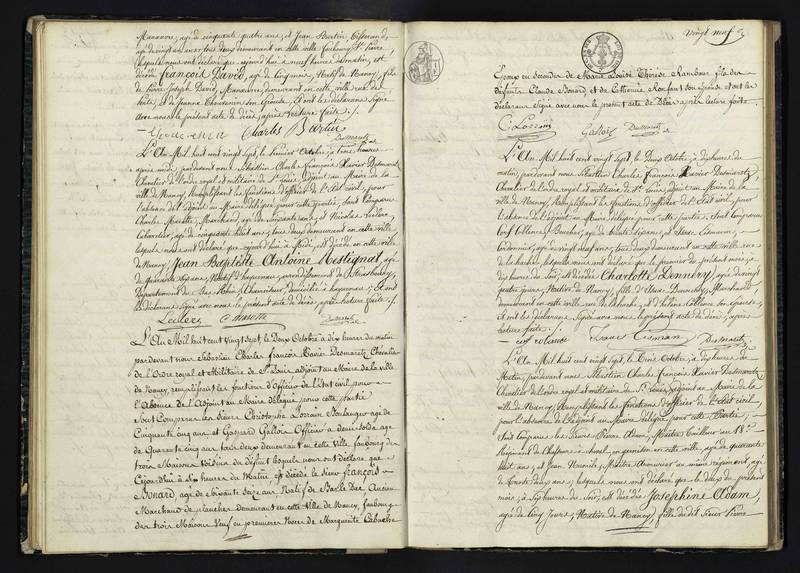 Manœuvre, agé de cinquante quatre ans, et Jean Bertin
agé de vingt un ans, tous deux demeurant en cette ville faubourg St. Pierre,
lesquels nous ont déclaré que cejourd'hui à neuf heures du matin, est
décédé françois David, agé de natif de Nancy, fils
de Joseph David, Manœuvre, demeurant en cette ville rue des
et de Jeanne son Epouse, et ont les déclarans signé
avec nous le présent acte de décès, après lecture faite ./.
Charles Bertin
Desmaretz
L'An Mil huit cent vingt sept, le Premier Octobre, à trois heures
après midi, pardevant nous Sébastien Charles François Xavier Desmaretz,
Chevalier de l'ordre royal et militaire de St. Louis, Adjoint au Maire de la
ville de Nancy, Remplissant les fonctions d'officier de l'Etat civil, pour
l'absence de l'Adjoint au Maire délégué pour cette partie, sont Comparus
Charles Marotte, Marchand, agé de soixante ans, et Nicolas Leclerc,
Cabaretier, agé de cinquante huit ans, tous deux demeurant en cette ville,
lesquels nous ont déclaré que cejourd'hui à Midi, est décédé en cette ville
de Nancy, Jean Baptiste Antoine Mestignat, agé
de quarante ans, Natif d'haguenau, arrondissement de Strasbourg,
Département du Bas Rhin, domicilié à haguenau; Et ont
les déclarans signé avec nous le présent acte de décès, après lecture faite ./.
Leclerc Marotte Desmaretz
L'An Mil huit cent vingt sept, le Deux Octobre à dix heures du matin
pardevant nous Sébastien Charles françois Xavier Desmaretz Chevalier
de l'Ordre royal et Militaire de St. Louis adjoint au Maire de la ville
de Nancy, remplissant les fonctions d'officier de l'Etat civil pour
l'Absence de l'Adjoint au Maire Délégué pour cette partie
Sont Comparus les Sieurs Christophe Lorrain Boulanger agé de
Cinquante cinq ans et Gaspard Gallois Officier à demi solde agé
de Quarante cinq ans tous deux demeurant en cette Ville, faubourg des
trois Maisons Voisins du défunt lesquels nous ont déclaré que
Cejourd'hui à dix heures du Matin est décédé le Sieur françois
Nonard, agé de soixante seize ans Natif de Bar le Duc Ancien
Marchand de plancher demeurant en cette Ville de Nancy, faubourg
des trois Maisons Veuf en premières Noces de Marguerite
Vingt neuf
Epoux en secondes de Marie Louise Thérèse Rambour, fils des
défunts Claude Nonard et de Catherine Ronfaut son Epouse et ont les
déclarans Signé avec nous le présent acte de Décès après lecture faite
C. Lorrain Gallois Desmaretz
L'An Mil huit cent vingt sept, le Deux Octobre, à dix heures du
matin, pardevant nous Sébastien Charles François Xavier Desmaretz,
Chevalier de l'ordre royal et militaire de St. Louis, Adjoint au Maire de la
ville de Nancy, Remplissant les fonctions d'officier de l'Etat civil, pour
l'absence de l'Adjoint au Maire délégué pour cette partie, sont Comparus
Boucher, agé de trente six ans, et Isaac Cisman,
Cordonnier, agé de vingt neuf ans, tous deux demeurant en cette ville rue
lesquels nous ont déclaré que le premier du présent mois, à
dix heures du soir, est décédée Charlotte Dennery, agée de vingt
quatre jours, Native de Nancy, fille d'Isaac Dennery, Marchand,
demeurant en cette ville, et d'hélène son Epouse,
et ont les déclarans, signé avec nous le présent acte de décès, après
lecture faite ./.
Isaac Cisman Desmaretz
L'An Mil huit cent vingt sept, le Trois Octobre, à dix heures du
Matin, pardevant nous Sébastien Charles François Xavier Desmaretz,
Chevalier de l'ordre royal et militaire de St. Louis, adjoint au Maire de la
ville de Nancy, Remplissant les fonctions d'officier de l'Etat civil,
pour l'absence de l'Adjoint au Maire délégué pour cette Partie,
Sont Comparus les Sieurs Pierre Adam, Maître Tailleur au 18e
Régiment de Chasseurs à cheval, en garnison en cette ville, agé de quarante
huit ans, et Jean Maître Armurier au même régiment agé
de trente deux ans, lesquels nous ont déclaré que le deux du présent
mois, à sept heures du soir, est décédée Josephine Adam,
agée de cinq Jours, Native de Nancy, fille du dit Sieur Pierre